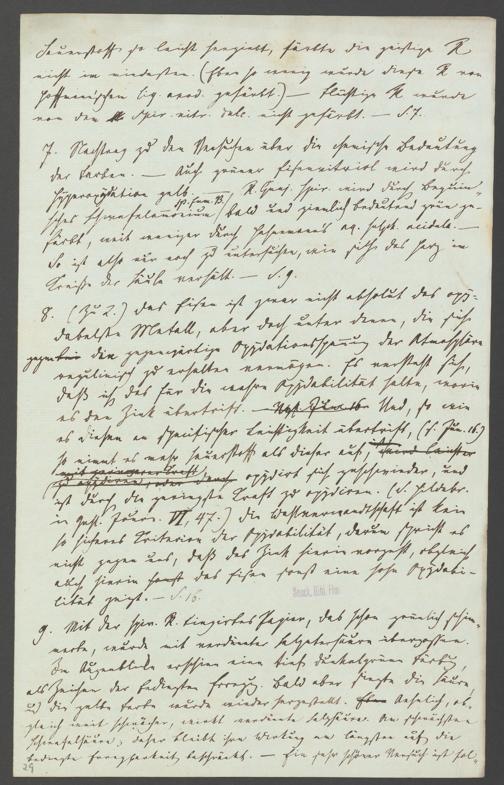 Sauerstoff so leicht hergiebt, färbte die geistige R
nicht im mindesten. (Eben so wenig wurde diese R von
gefärbt.) — Flüssige R wurde
von dem Spir. nitr. dulc. nicht gefärbt. — S. 7.
7. Nachtrag zu den Versuchen über die chemische Bedeutung
der Farben. — Auch grüner Eisenvitriol wird durch
Hyperoxydation gelb. — R. Guaj. spir. wird durch
bald und ziemlich bedeutend grün ge-
färbt, weit weniger durch
Es ist also nur noch zu untersuchen, wie sichs das Harz im
Kreise der Säule verhält. — S. 9.
8. (Zu 2.) Das Eisen ist zwar nicht absolut das oxy-
dabelste Metall, aber doch unter denen, die sich
gegen die gegenwärtige Oxydationsspannung der Atmosphäre
regulinisch zu erhalten vermögen. Es versteht sich,
daß ich das für die wahre Oxydabilität halte, worin
es den Zink übertrifft. — Und, so wie
es diesen an specifischer übertrifft, (s. Zu. 16)
so nimmt es mehr Sauerstoff als dieser auf,
oxydirt sich geschwinder, und
ist durch die geringste Kraft zu oxydiren. (S. Hildebr.
in Gehl. Journ. VI, 47.) Die Wasserverwandtschaft ist kein
so sicheres Criterion der Oxydabilität, darum spricht es
nicht gegen uns, daß das Zink hierin vorgeht, obgleich
auch hierin das Eisen sonst eine hohe Oxydabi-
lität zeigt. — S. 16.
9. Mit der spir. R. tingirtes Papier, das schon grünlich schim-
merte, wurde mit verdünnter Salpetersäure übergossen.
Im Augenblicke erschien eine tief dunkelgrüne Färbung,
als Zeichen der bedingten Erregg. Bald aber siegte die Säure
und die gelbe Farbe wurde wieder hergestellt. Aehnlich, ob-
gleich weit schwächer, wirkt verdünnte Salzsäure. Am schwächsten
Schwefelsäure; daher bleibt ihre Wirkung am längsten auf die
bedingte Erregbarkeit beschränkt. — Ein sehr schöner Versuch ist fol-
29